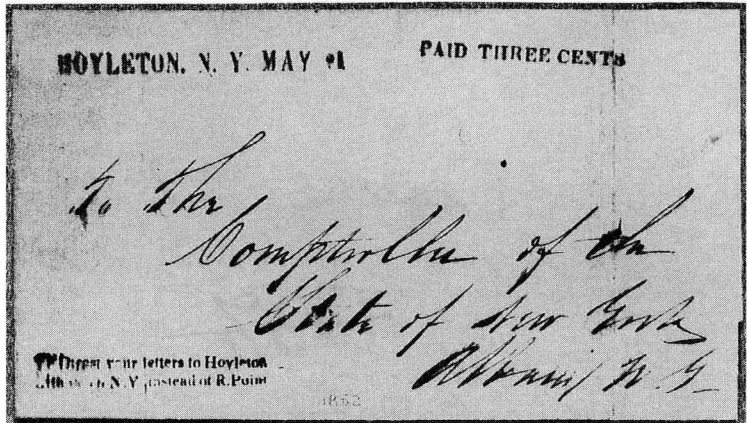 HOYLETON. N. Y. MAY 21
PAID THREE CENTS
to the
Comptroller of the
State of New York
Albany N Y
Direct your letters to Hoyleton
N. Y. instead of R. Point
1862